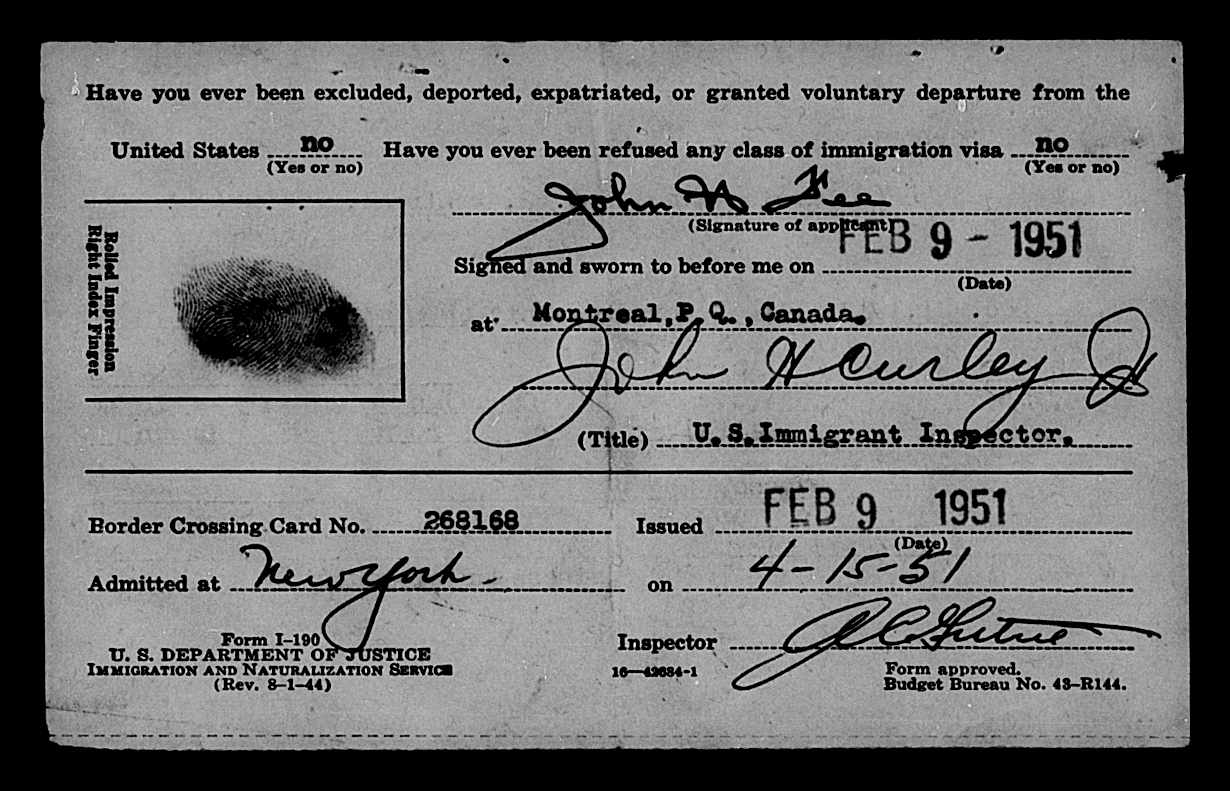 Have you ever been excluded, deported, expatriated, or granted voluntary departure from the
United States no Have you ever been refused any class of immigration visa no
(Yes or no) (Yes or no)
John W Fee
(Signature of applicant)
Rolled Impression
Right Index Finger
FEB 9 - 1951
Signed and sworn to before me on
(Date)
at Montreal, P. Q., Canada.
John H Curley Jr
(Title) U. S. Immigrant Inspector.
Border Crossing Card No. 268168 Issued FEB 9 1951
(Date)
Admitted at New York - on 4-15-51
Form I-190
U. S. DEPARTMENT OF JUSTICE
IMMIGRATION AND NATURALIZATION SERVICE
(Rev. 8-1-44)
Inspector
16—42684-1
Form approved.
Budget Bureau No. 43-R144.